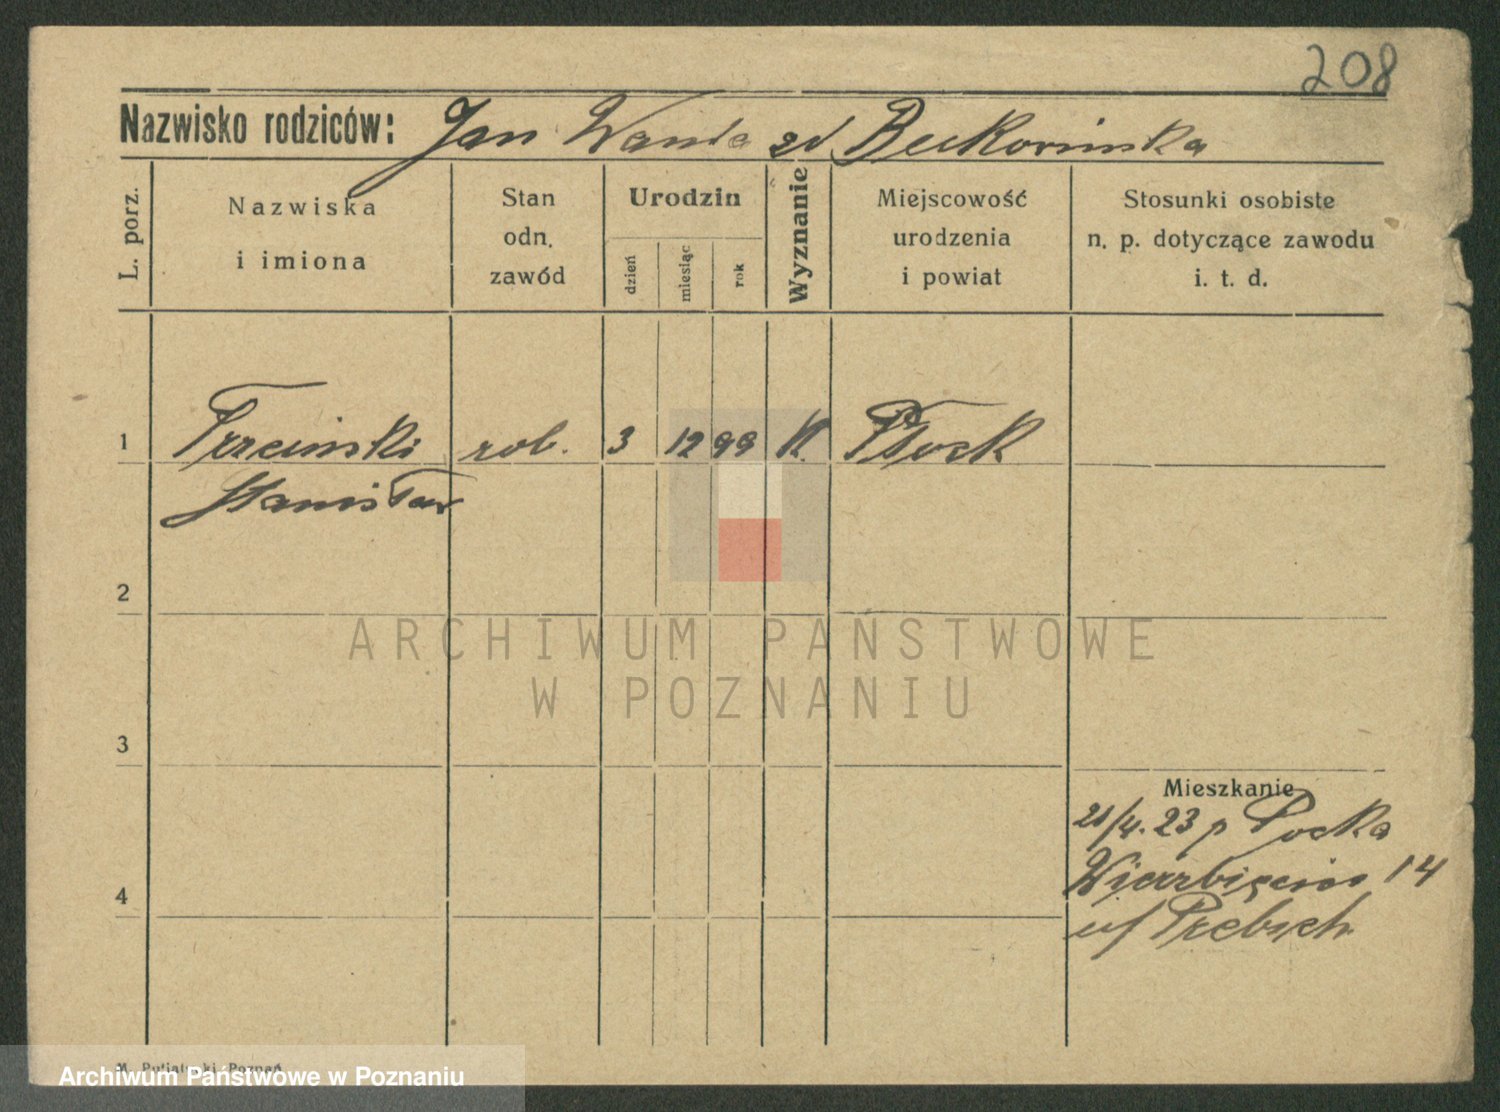 208
Nazwisko rodziców: Jan Wanda zd
L. porz.
Nazwiska
i imiona
Stan
odn.
zawód
Urodzin
dzień
miesiąc
rok
Wyznanie
Miejscowość
urodzenia
i powiat
Stosunki osobiste
n. p. dotyczące zawodu
i. t. d.
1 Trzciński rob. 3 12 99 K. Płock
Stanisław
2
ARCHIWUM PAŃSTWOWE
W POZNANIU
3
Mieszkanie
21/4. 23 p
4 14
M. Putiatycki, Poznań
Archiwum Państwowe w Poznaniu